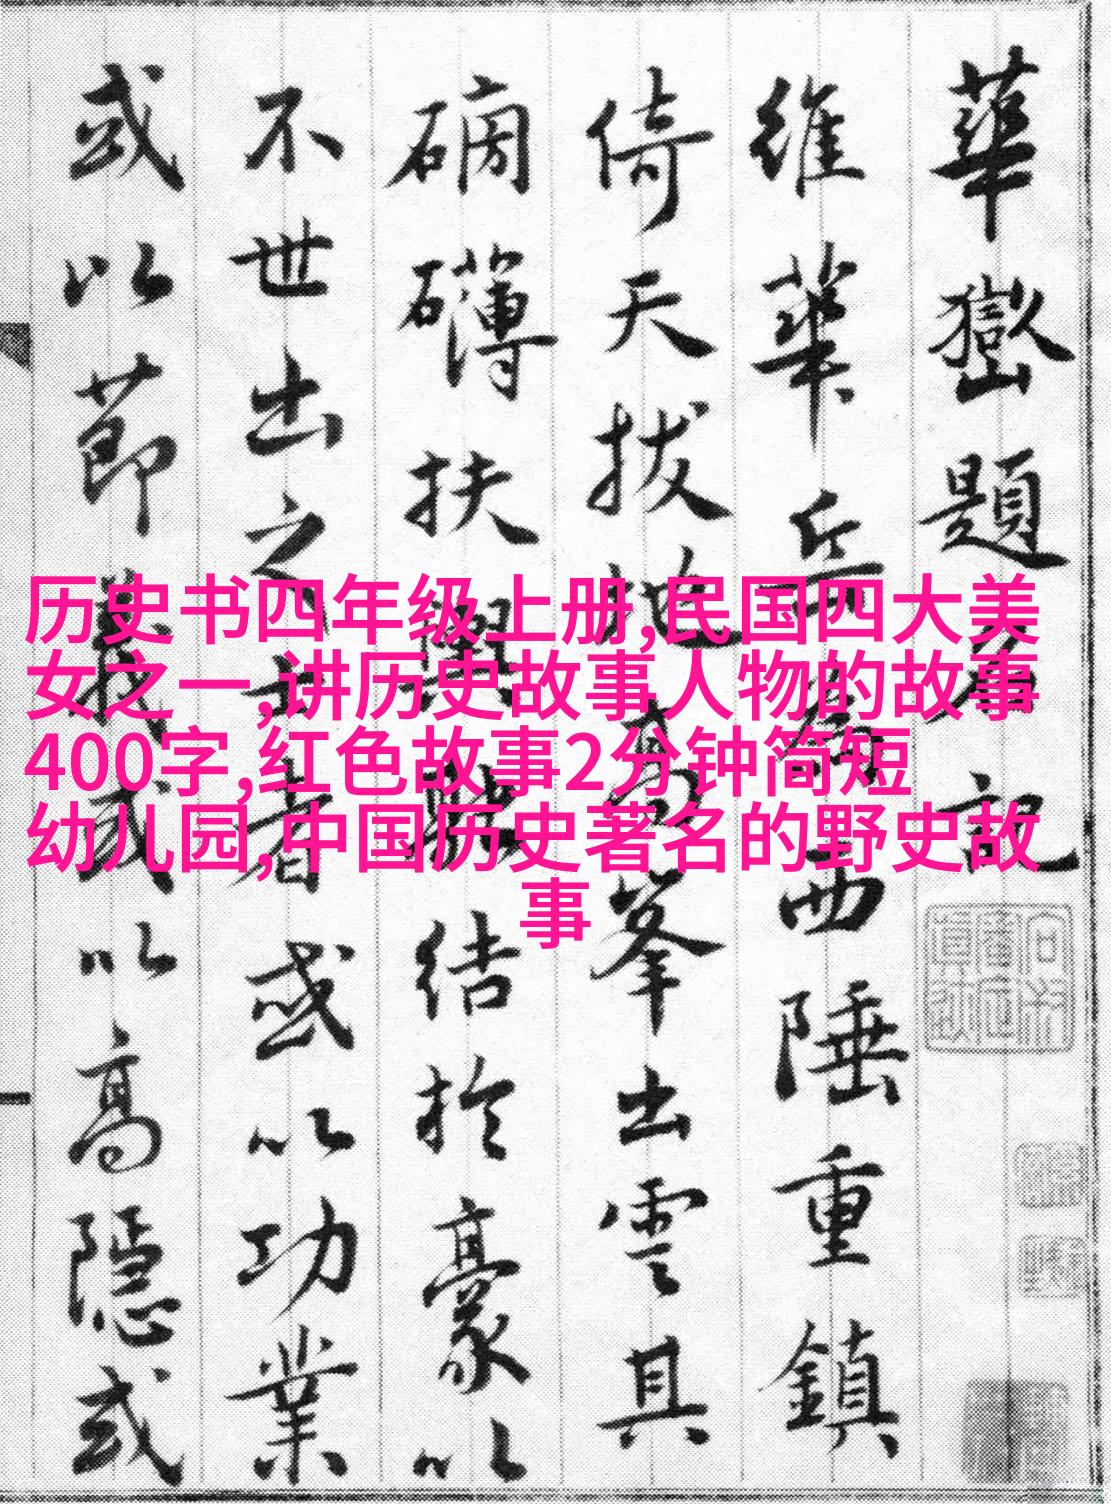 历史书四年级上册,民国四大美
女之一,讲历史故事人物的故事
400字,红色故事2分钟简短
幼儿园,中国历史著名的野史故
事
華嶽題名記
維華岳為西陲重鎮
倚天拔地峯出雲其
磅礴扶輿結於豪以
不世出之士者或以功業
或以節義或以高隱或